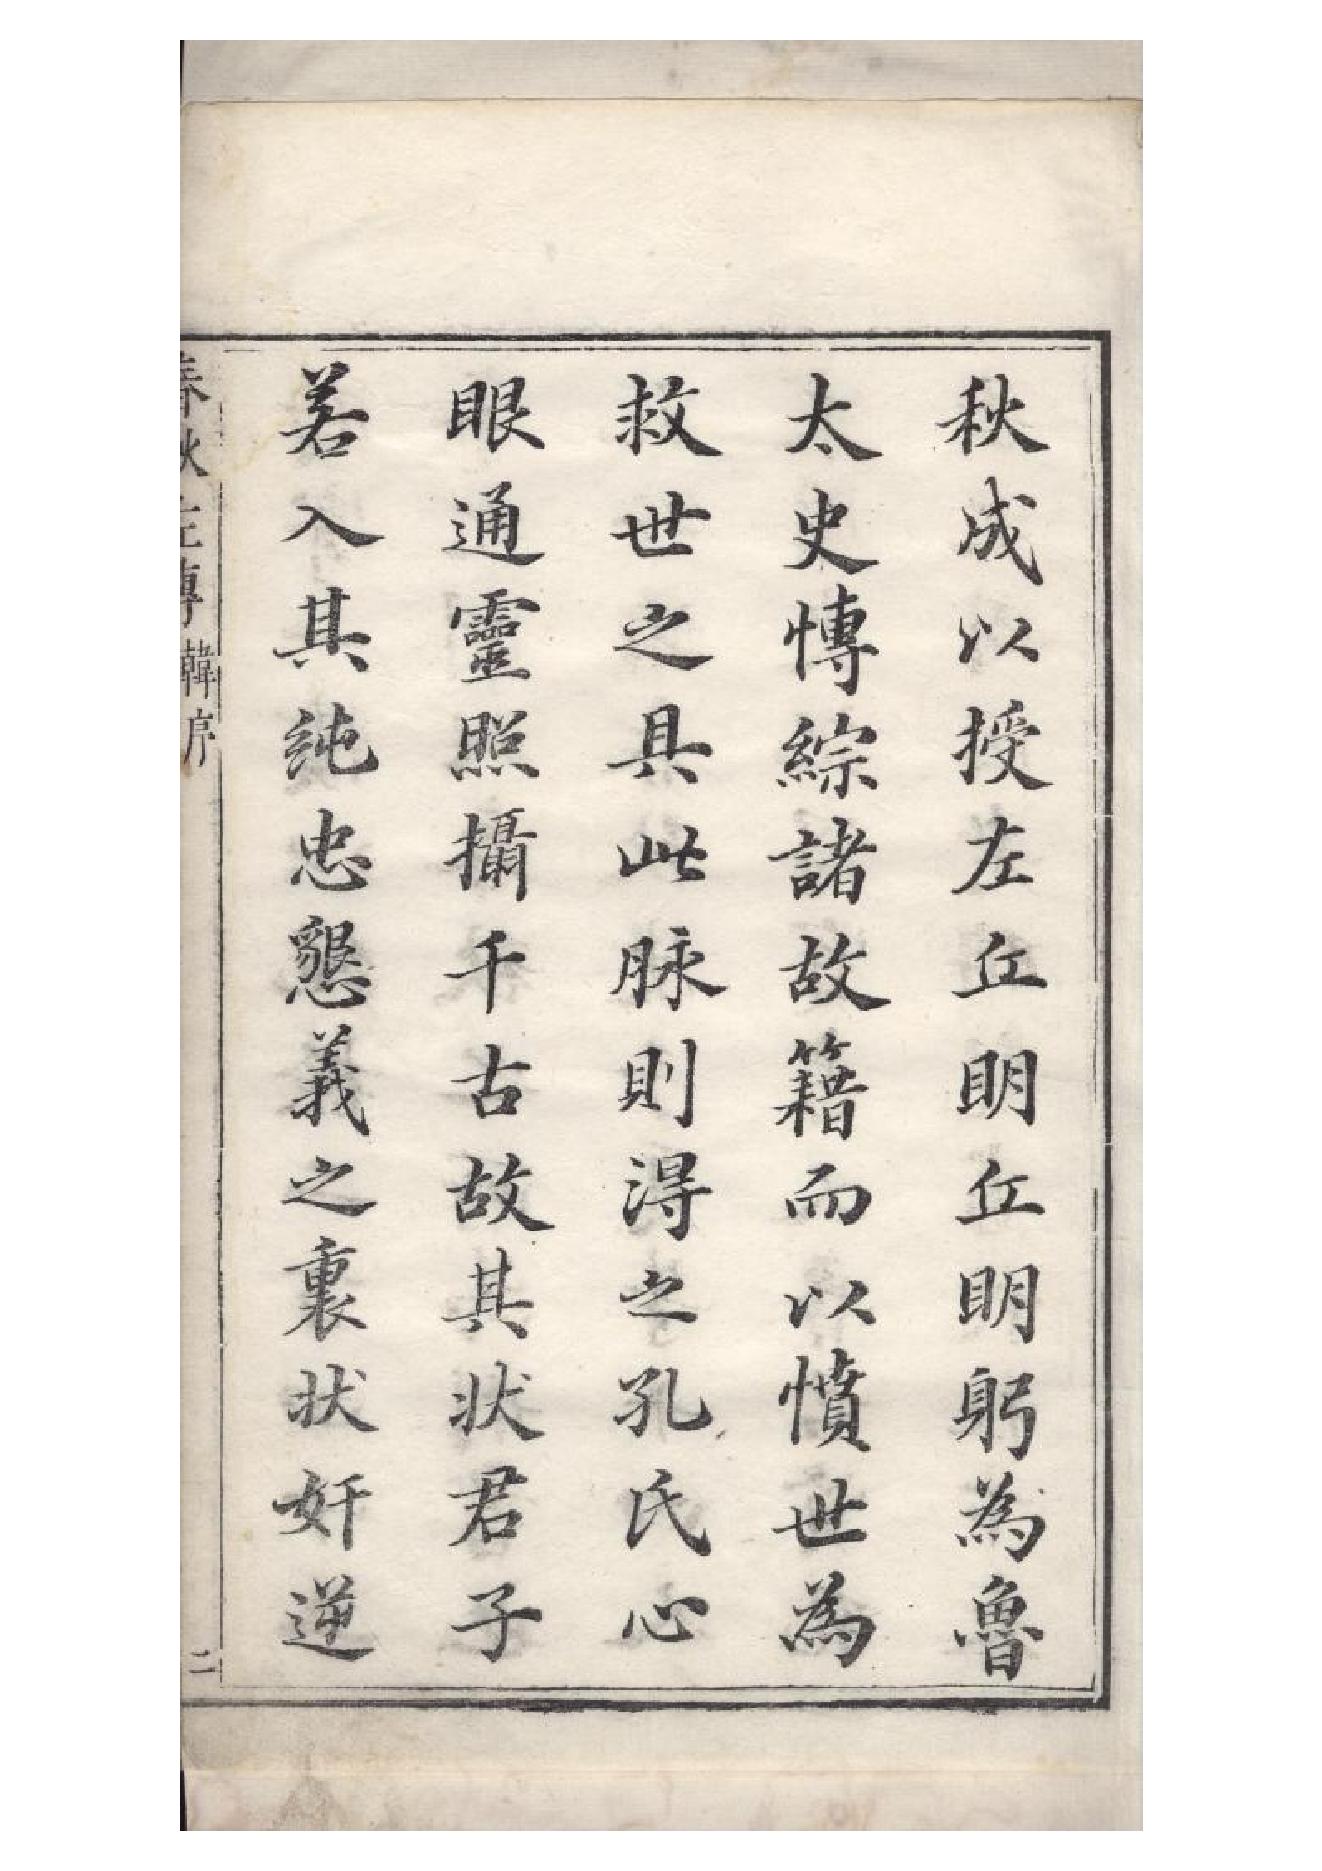 秋成以授左丘明丘明躬為魯
太史慱綜諸故籍而以憤世為
救世之具此脉則淂之孔氏心
眼通靈照攝千古故其状君子
若入其純忠懇義之裏状奸逆
春秋左傳 韓序 二